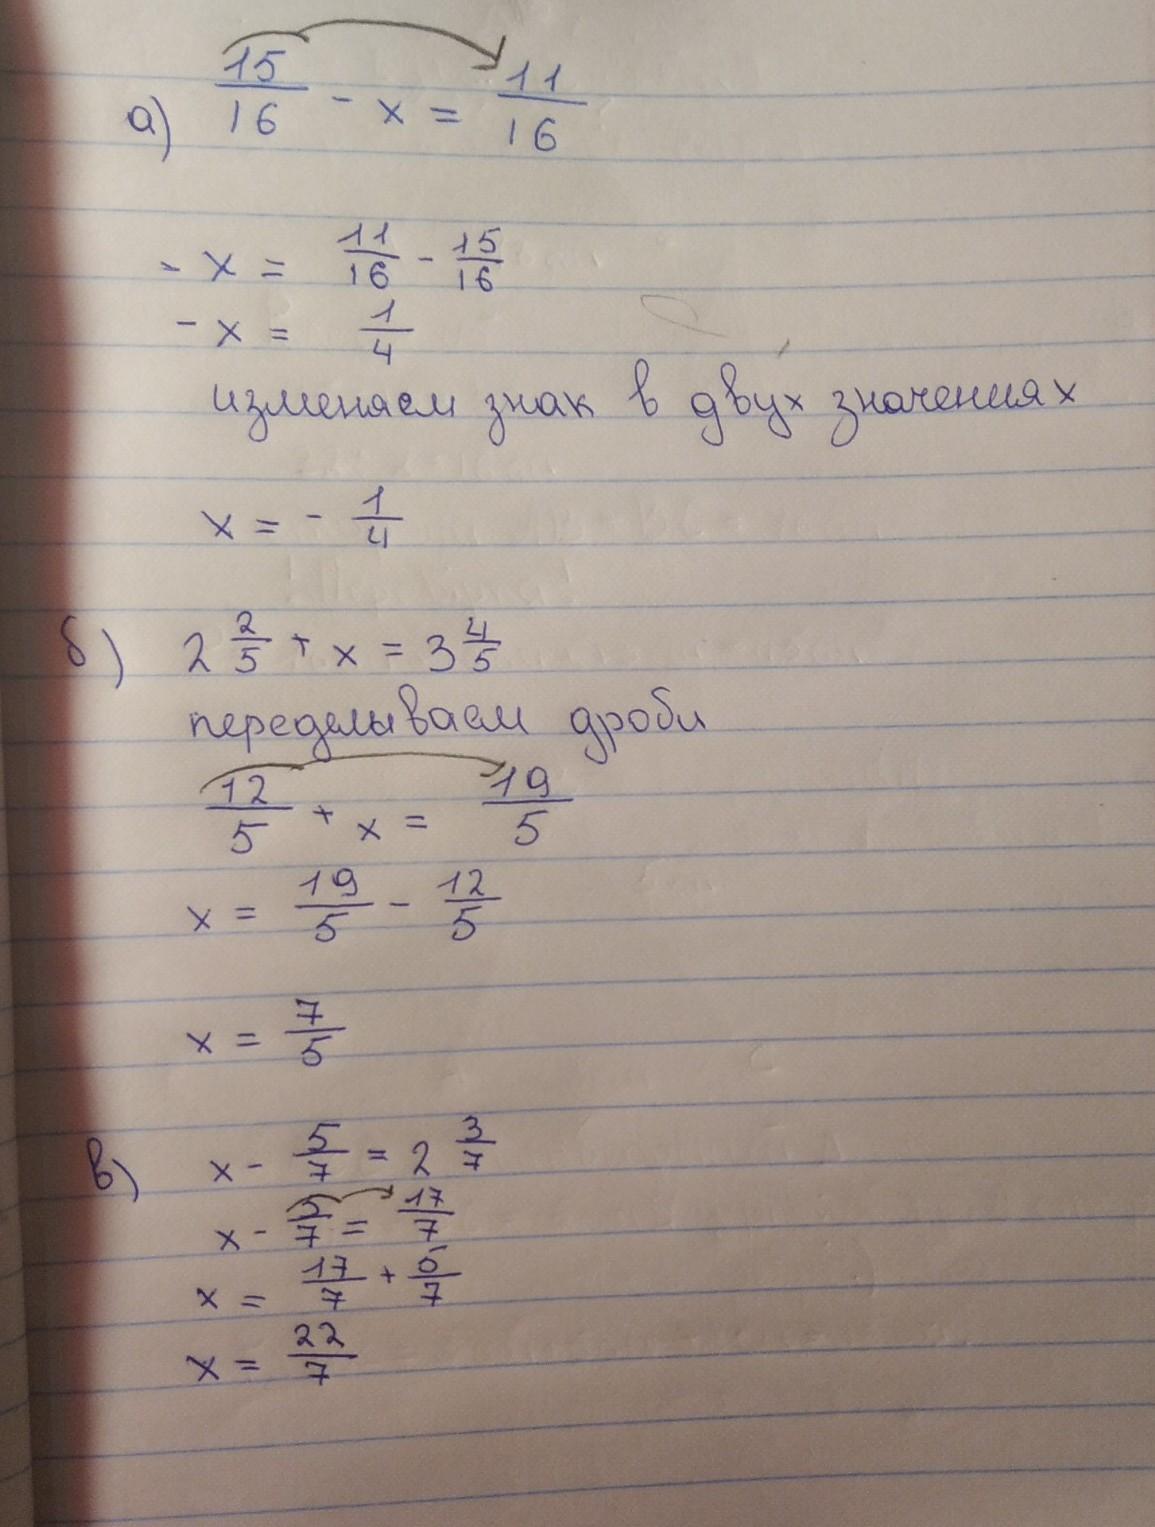 а) 15/16 - x = 11/16
- x = 11/16 - 15/16
- x = 1/4
изменяем знак в двух значениях
x = - 1/4
б) 2 2/5 + x = 3 4/5
переделываем дроби
12/5 + x = 19/5
x = 19/5 - 12/5
x = 7/5
в) x - 5/7 = 2 3/7
x - 5/7 = 17/7
x = 17/7 + 5/7
x = 22/7